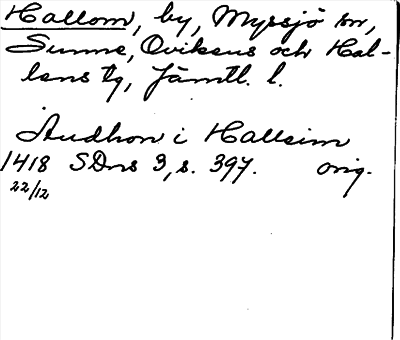 Hallom, by, Myssjö sn,
Sunne, Oviksns och Hal-
lens tg, Jämtl. l.
Audhon i Hallsim
1418 SDns 3, s. 397. orig.
22/12